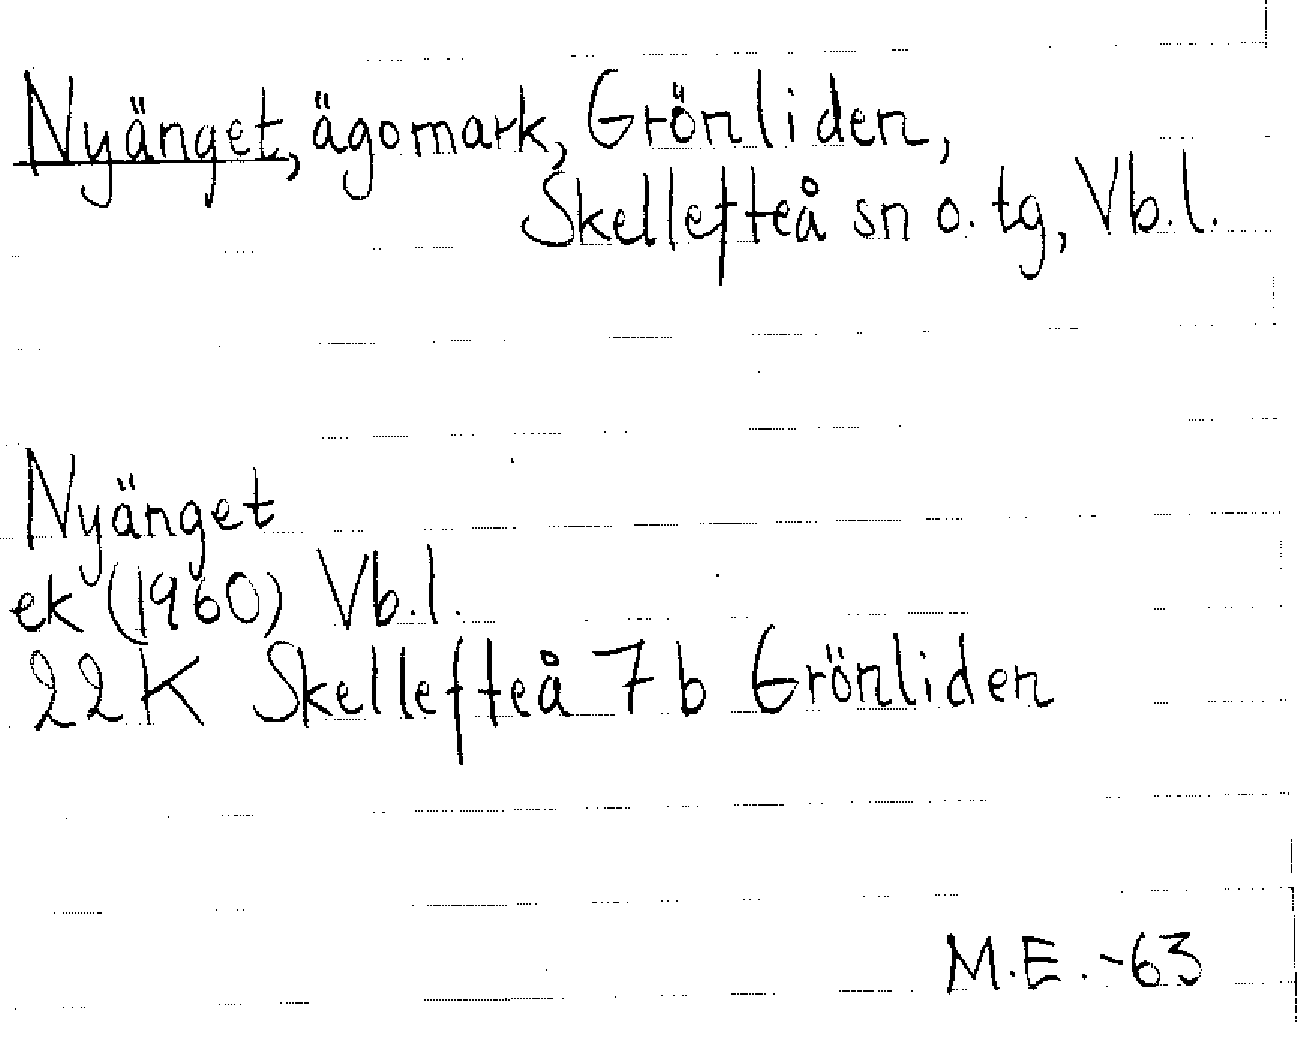 Nyänget, ägomark, Grönliden,
Skellefteå sn o. tg, Vb.l.
Nyänget
ek (1960) Vb.l.
22K Skellefteå 7 b Grönliden
M.E. -63